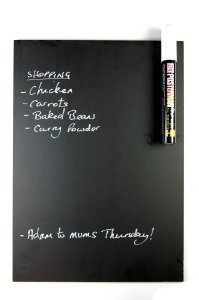 SHOPPING
- Chicken
- Carrots
- Baked Beans
- Curry Powder
- Adam to mums Thursday!